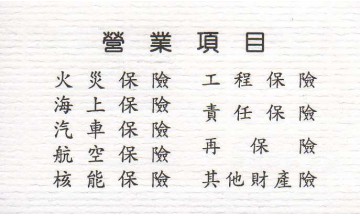 營業項目
火災保險
海上保險
汽車保險
航空保險
核能保險
工程保險
責任保險
再保險
其他財產險